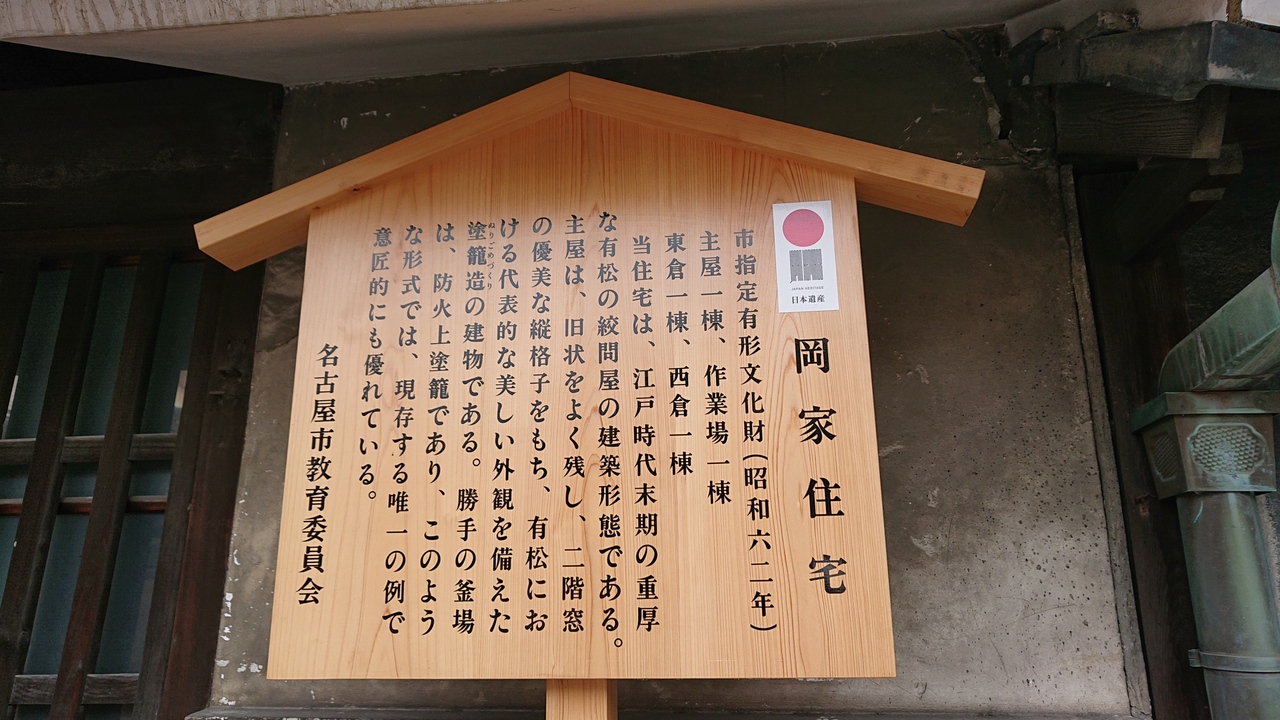 岡家住宅
JAPAN HERITAGE
日本遺産
市指定有形文化財(昭和六二年)
主屋一棟、作業場一棟
東倉一棟、西倉一棟
当住宅は、江戸時代末期の重厚
な有松の絞問屋の建築形態である。
主屋は、旧状をよく残し、二階窓
の優美な縦格子をもち、有松にお
ける代表的な美しい外観を備えた
塗籠造の建物である。勝手の釜場
ぬりごめづくり
は、防火上塗籠であり、このよう
な形式では、現存する唯一の例で
意匠的にも優れている。
名古屋市教育委員会